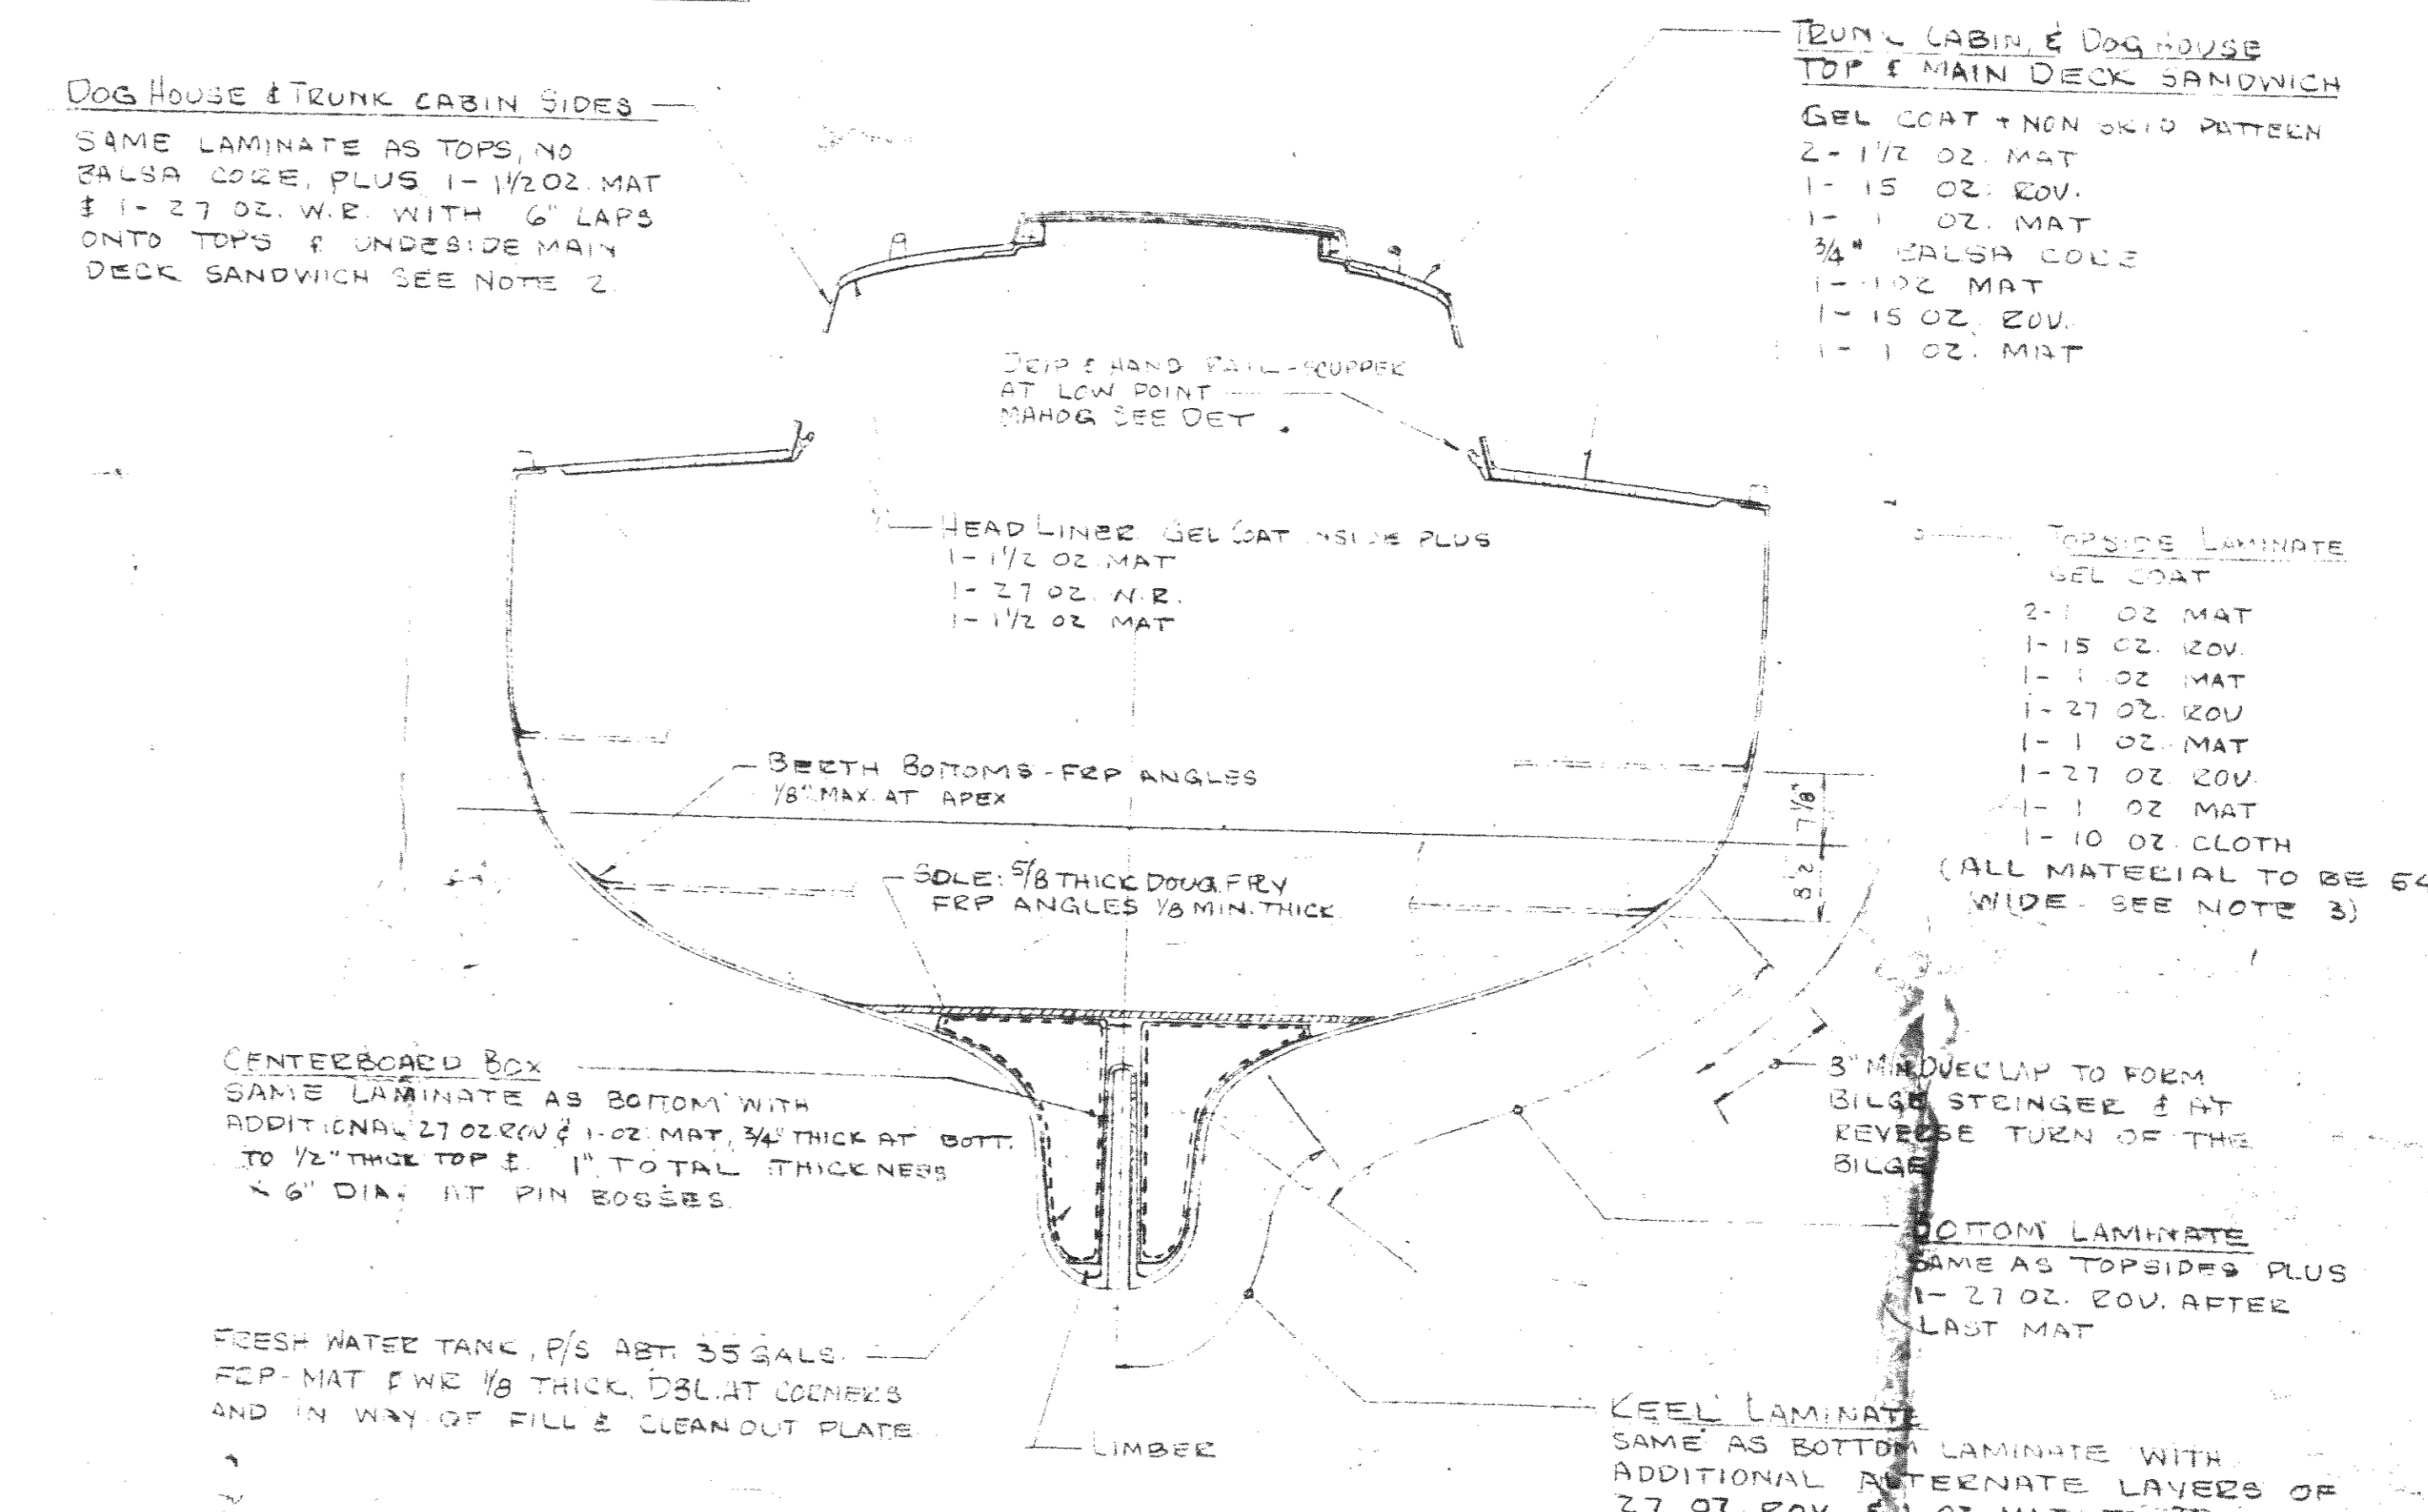 DOG HOUSE & TRUNK CABIN SIDES
SAME LAMINATE AS TOPS, NO
BALSA CORE, PLUS 1- 1 1/2 OZ. MAT
& 1- 27 OZ. W.R. WITH 6" LAPS
ONTO TOPS & UNDESIDE MAIN
DECK SANDWICH SEE NOTE 2.
TRUNK CABIN, & DOG HOUSE
TOP & MAIN DECK SANDWICH
GEL COAT + NON SKID PATTERN
2- 1 1/2 OZ. MAT
1- 15 OZ. ROV.
1- 1 OZ. MAT
3/4" BALSA CORE
1- 1 OZ MAT
1- 15 OZ. ROV.
1- 1 OZ. MAT
DRIP & HAND RAIL-SCUPPER
AT LOW POINT
MAHOG SEE DET
HEAD LINER GEL COAT INSIDE PLUS
1- 1 1/2 OZ. MAT
1- 27 OZ. W.R.
1- 1 1/2 OZ MAT
TOPSIDE LAMINATE
GEL COAT
2- 1 OZ MAT
1- 15 OZ. ROV.
1- 1 OZ MAT
1- 27 OZ. ROV
1- 1 OZ. MAT
1- 27 OZ. ROV.
1- 1 OZ MAT
1- 10 OZ. CLOTH
(ALL MATERIAL TO BE 54
WIDE - SEE NOTE 3)
BERTH BOTTOMS - FRP ANGLES
1/8" MAX. AT APEX
7 1/8"
8 1/2
SOLE: 5/8 THICK DOUG. FRY
FRP ANGLES 1/8 MIN. THICK
CENTERBOARD BOX
SAME LAMINATE AS BOTTOM WITH
ADDITIONAL 27 OZ ROV & 1-OZ. MAT, 3/4" THICK AT BOTT.
TO 1/2" THICK TOP & 1" TOTAL THICKNESS
x 6" DIA. AT PIN BOSSES.
3" MIN OVERLAP TO FORM
BILGE STRINGER & AT
REVERSE TURN OF THE
BILGE
BOTTOM LAMINATE
SAME AS TOPSIDES PLUS
1- 27 OZ. ROV. AFTER
LAST MAT
FRESH WATER TANK, P/S ABT. 35 GALS.
FRP-MAT & WR 1/8 THICK, DBL. AT CORNERS
AND IN WAY OF FILL & CLEANOUT PLATE
LIMBER
KEEL LAMINATE
SAME AS BOTTOM LAMINATE WITH
ADDITIONAL ALTERNATE LAYERS OF
27 OZ. ROV. & 1 OZ. MAT